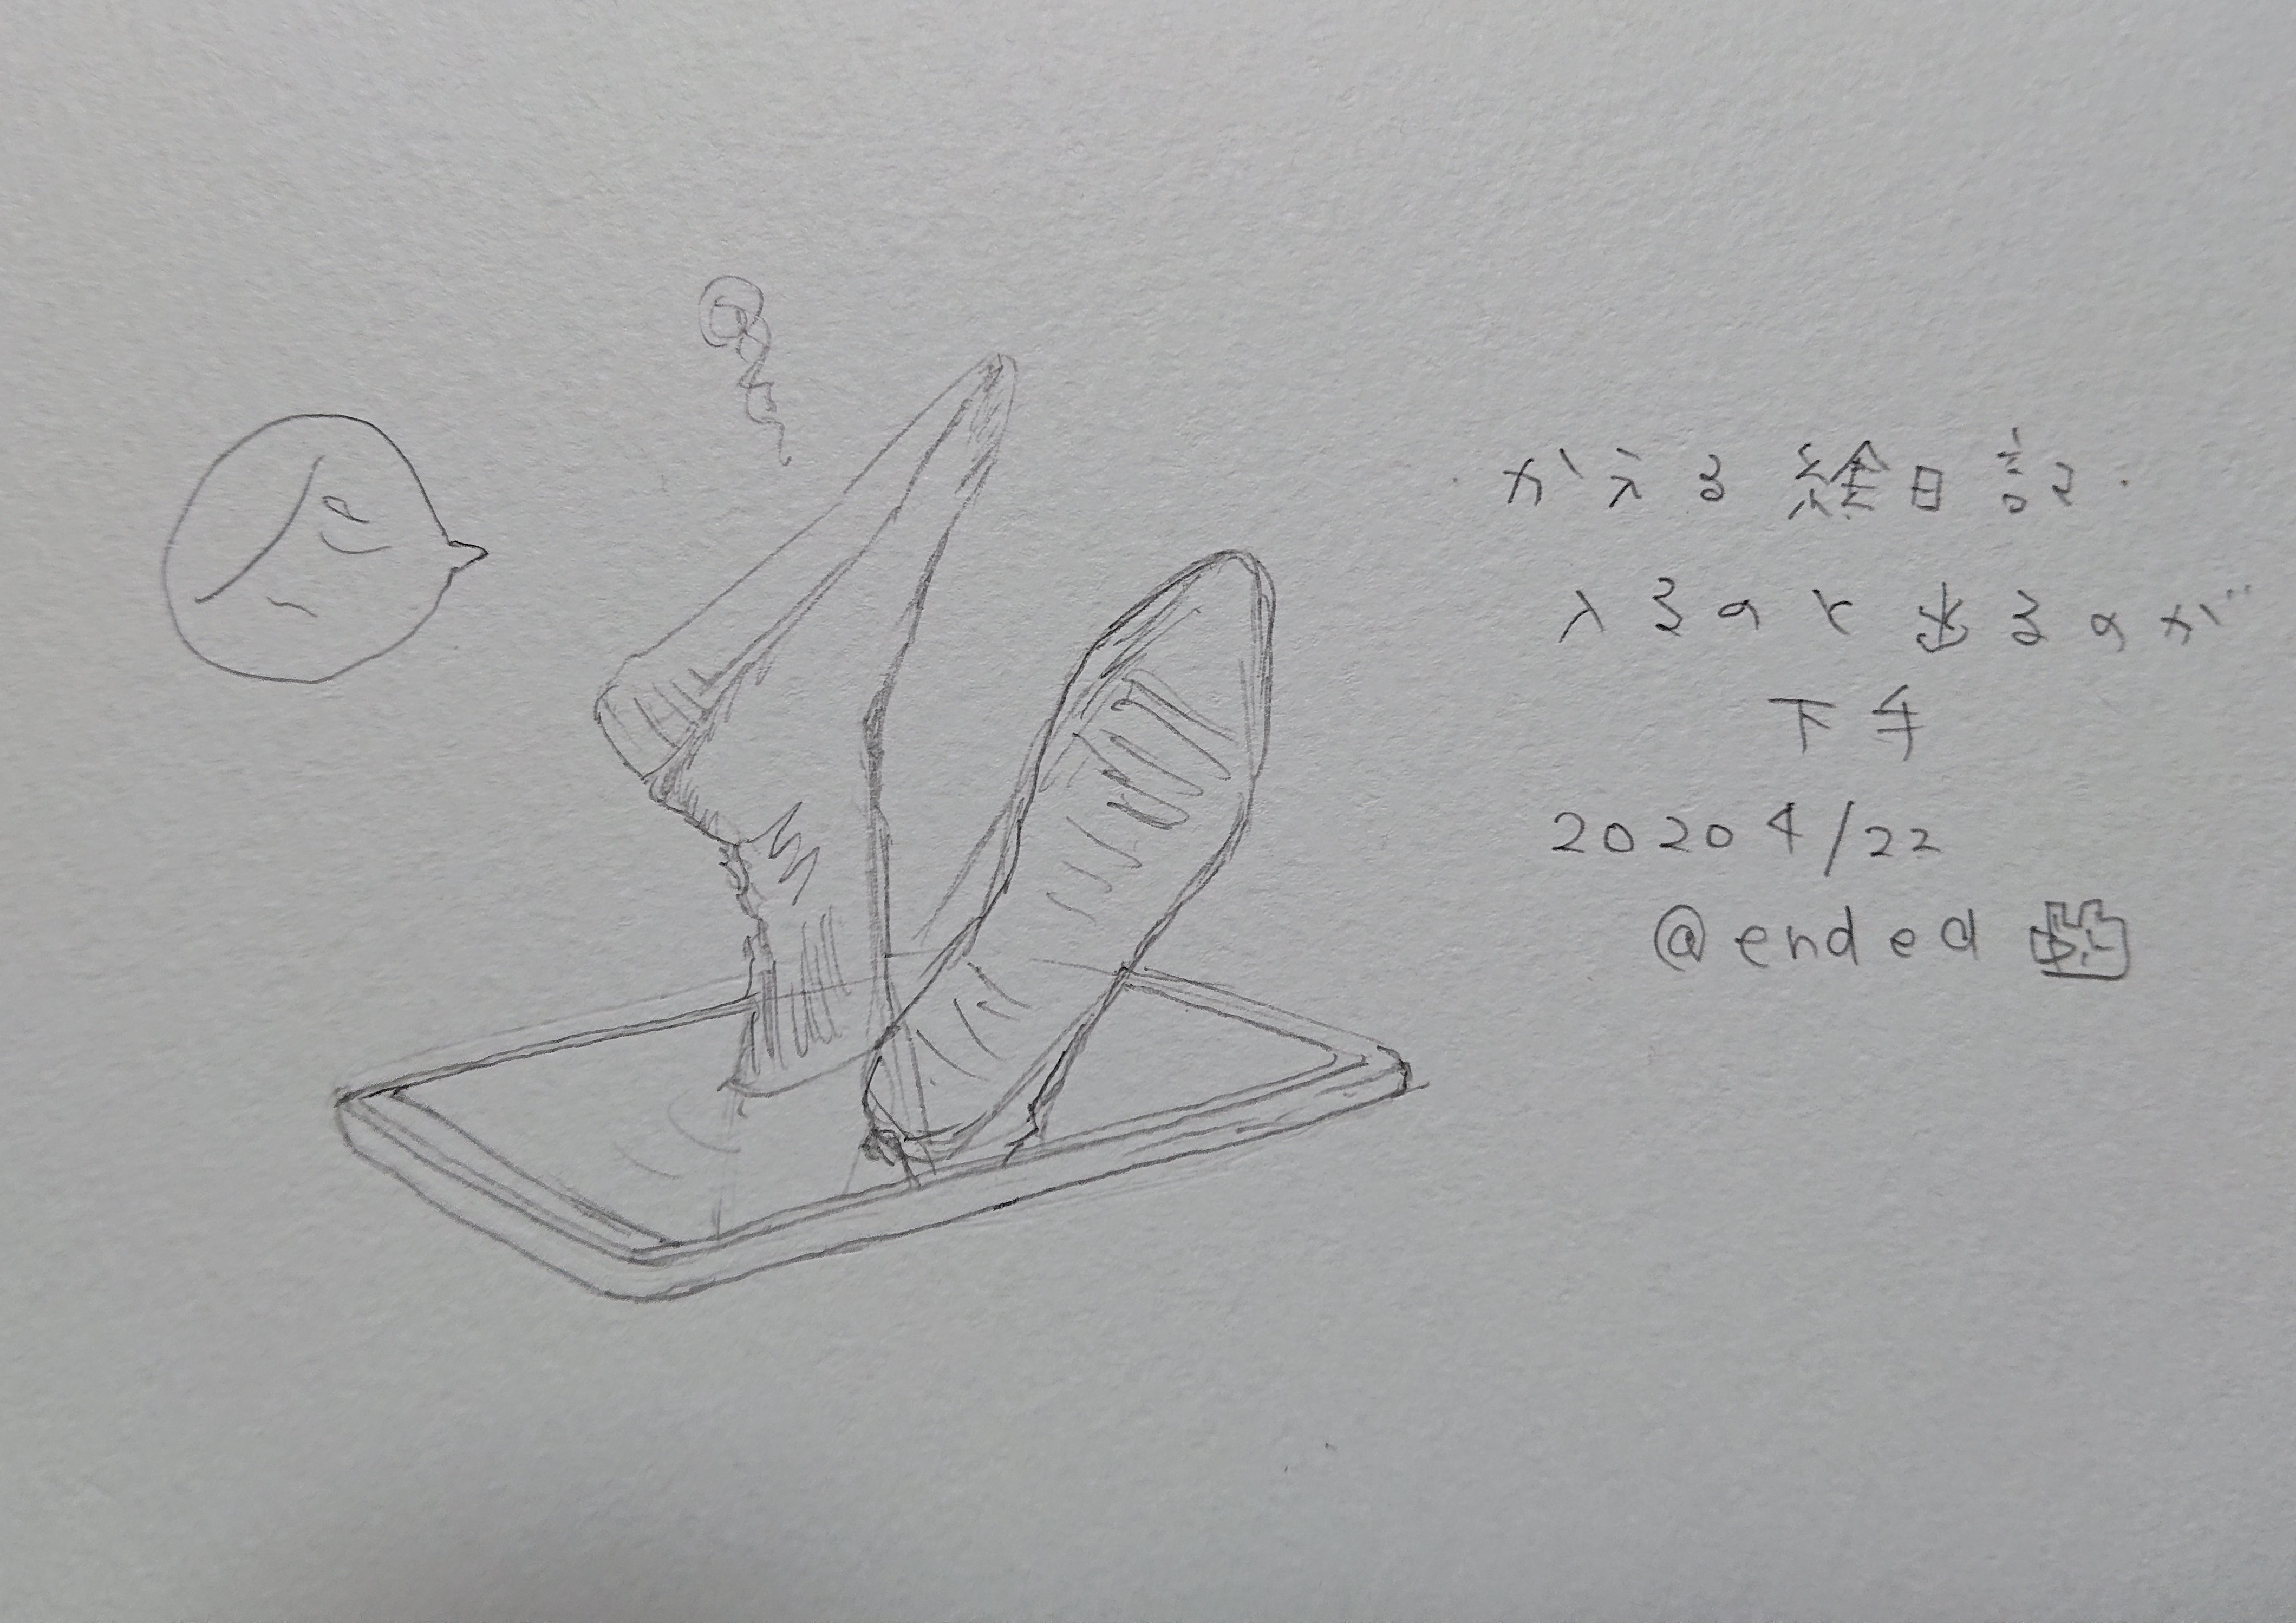 ・かえる絵日記・
入るのと出るのが
下手
2020 4/22
@ended